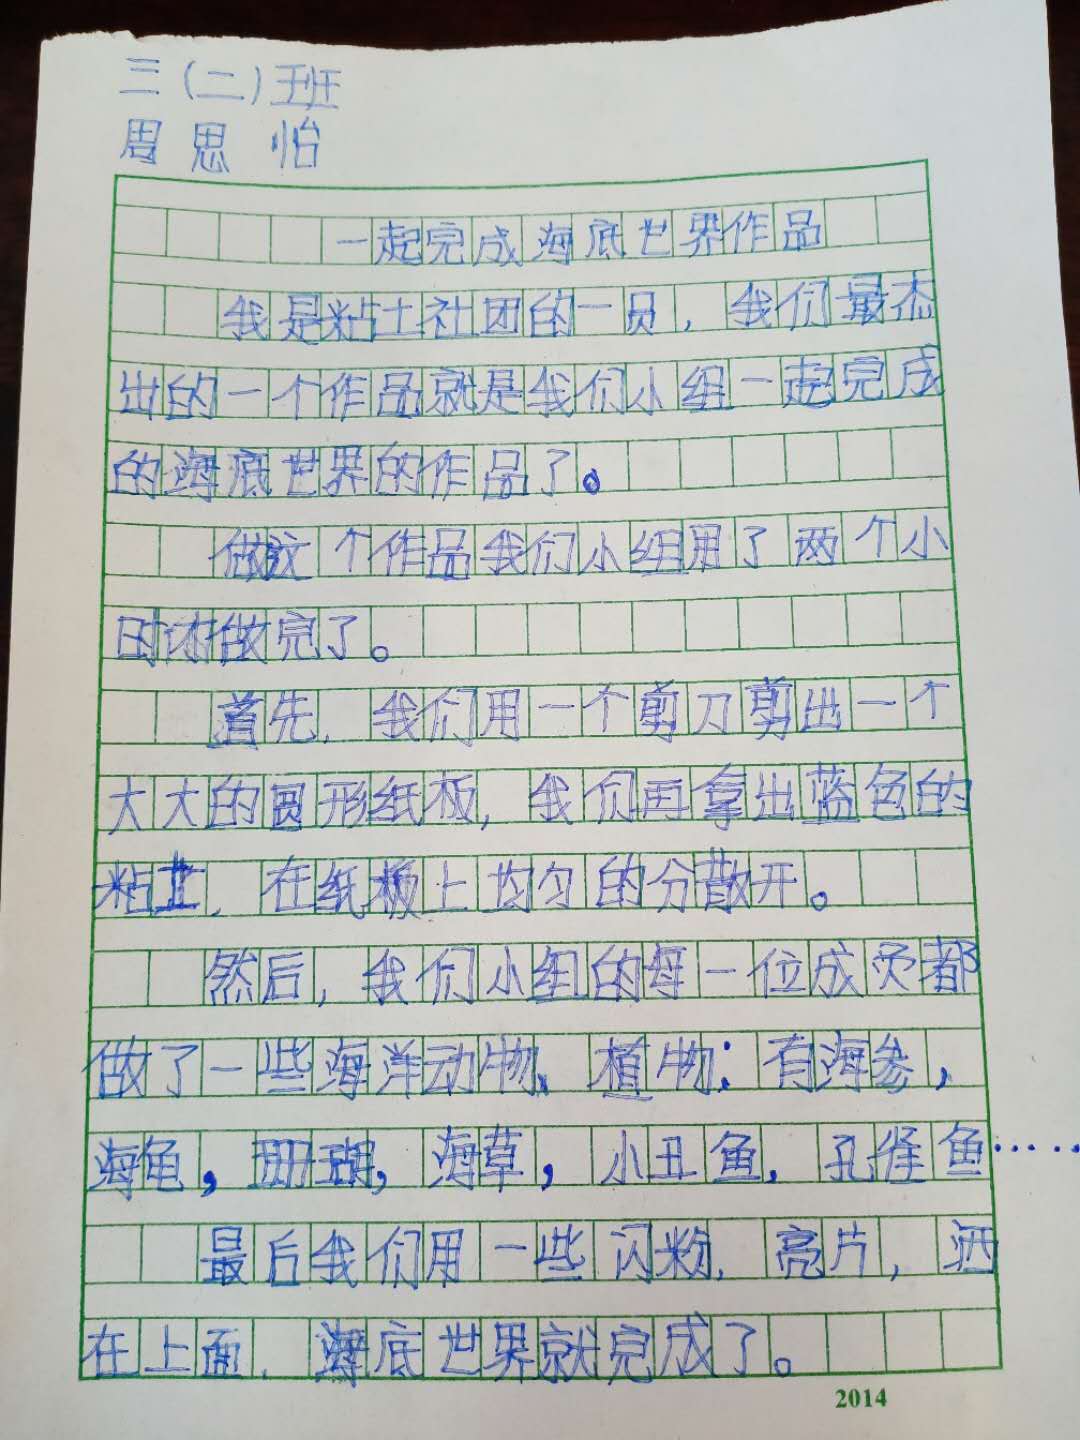 三(二)班
周思怡
一起完成海底世界作品
我是粘土社团的一员，我们最杰
出的一个作品就是我们小组一起完成
的海底世界的作品了。
做这个作品我们小组用了两个小
时才做完了。
首先，我们用一个剪刀剪出一个
大大的圆形纸板，我们再拿出蓝色的
粘土，在纸板上均匀的分散开。
然后，我们小组的每一位成员都
做了一些海洋动物、植物：有海参，
海龟，珊瑚，海草，小丑鱼，孔雀鱼……
最后我们用一些闪粉，亮片，洒
在上面，海底世界就完成了。
2014